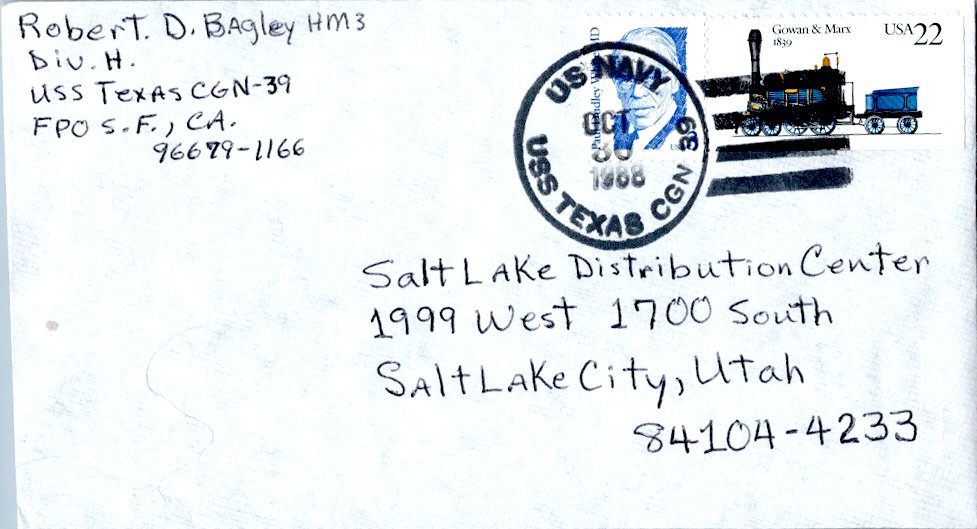 Robert. D. Bagley HM3
Div. H.
USS Texas CGN-39
FPO S.F., CA.
96679-1166
US NAVY
OCT
30
1988
USS TEXAS CGN 39
Paul Dudley White MD
Gowan & Marx
1839
USA22
Salt Lake Distribution Center
1999 West 1700 South
Salt Lake City, Utah
84104-4233